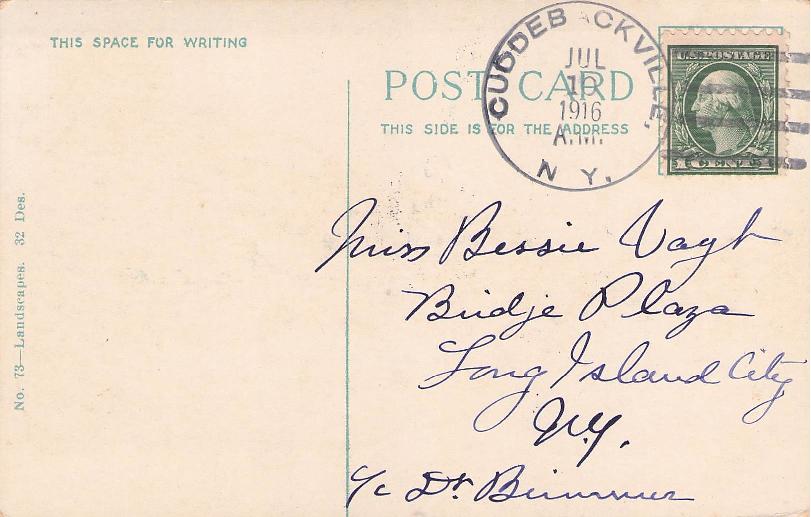 THIS SPACE FOR WRITING
POST CARD
THIS SIDE IS FOR THE ADDRESS
CUDDEBACKVILLE,
JUL
10
1916
A.M.
N.Y.
U.S. POSTAGE
1 CENT 1
Miss Bessie Vagt
Bridje Plaza
Long Island City
N.Y.
c/o Dr.
No. 73—Landscapes. 32 Des.